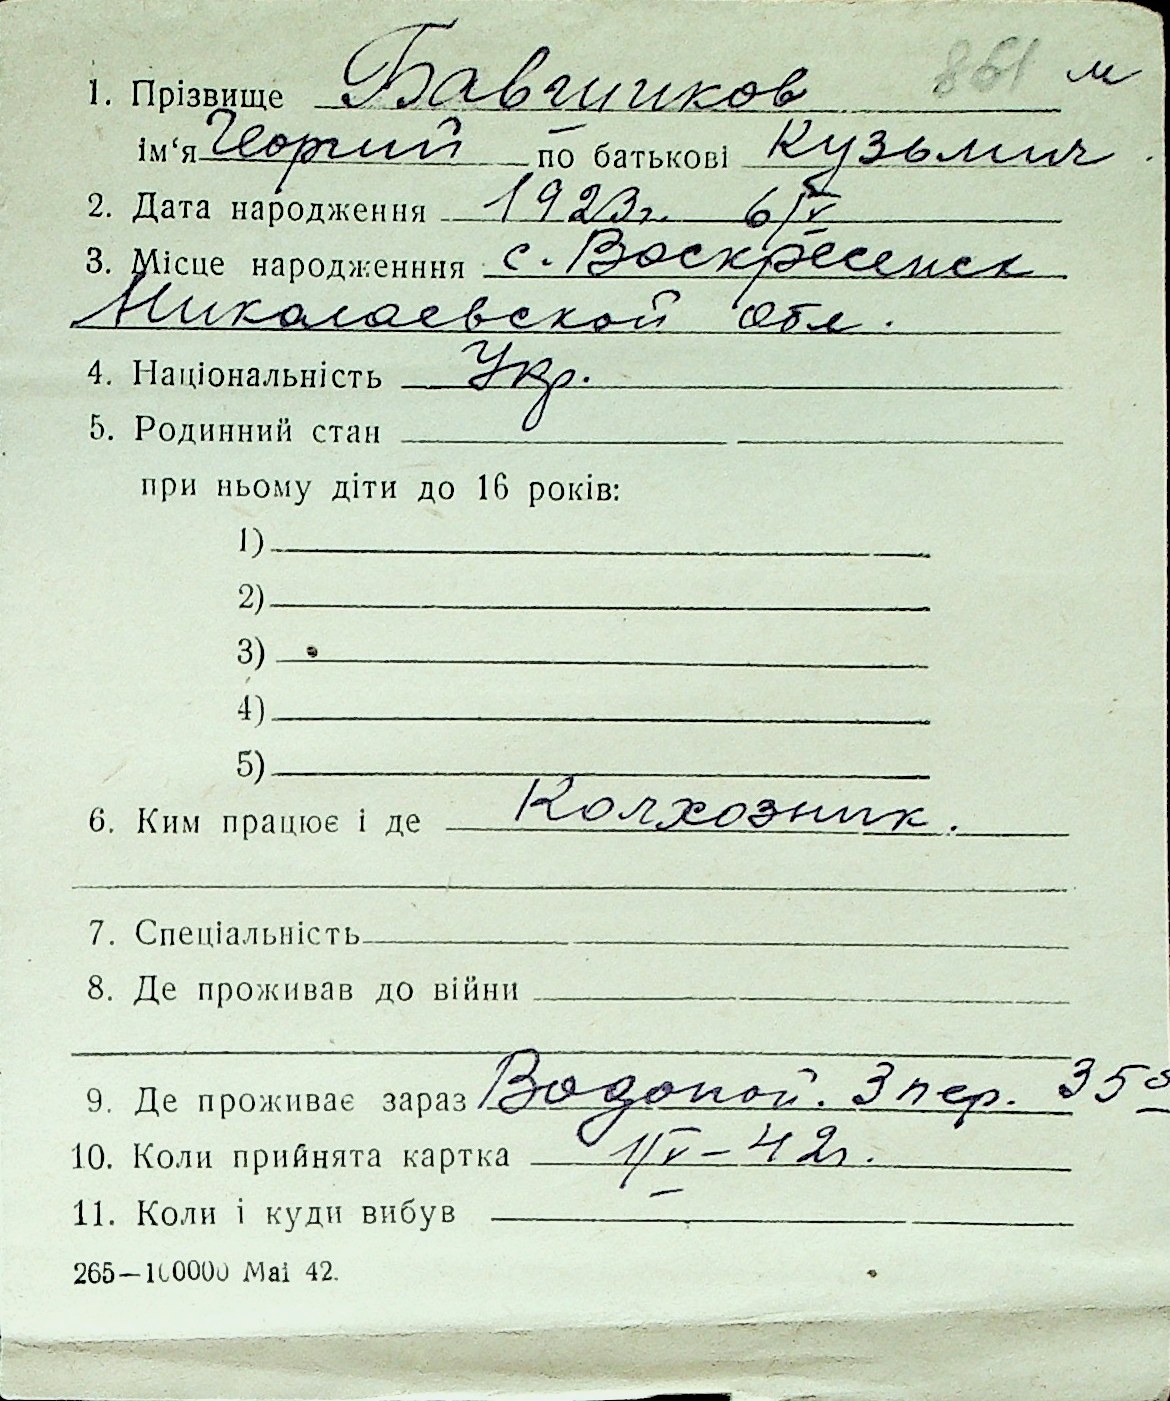 861 м
1. Прізвище Бавчиков
ім‘я Георгий по батькові Кузьмич
2. Дата народження 1923г. 6/V
3. Місце народженння с. Воскресенск
Николаевской обл.
4. Національність Укр.
5. Родинний стан
при ньому діти до 16 років:
1)
2)
3)
4)
5)
6. Ким працює і де Колхозник.
7. Спеціальність
8. Де проживав до війни
9. Де проживає зараз Водопой. 3 пер. 35
10. Коли прийнята картка 1/V-42г.
11. Коли і куди вибув
265—100000 Mai 42.